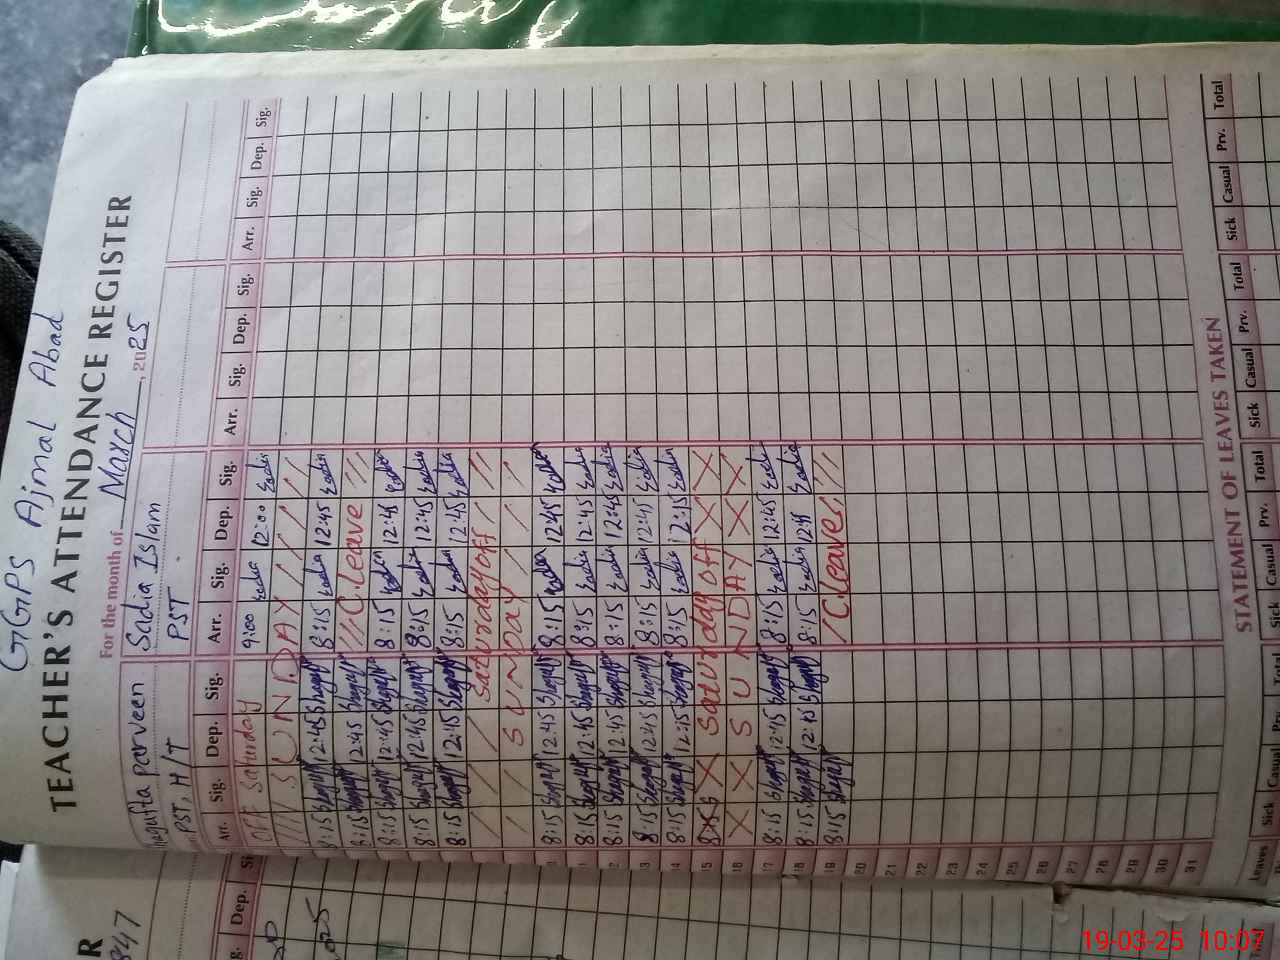 GGPS Ajmal Abad
TEACHER'S ATTENDANCE REGISTER
For the month of March, 2025
hagufta parveen Sadia Islam
PST, H/T PST
Arr. Sig. Dep. Sig. Arr. Sig. Dep. Sig. Arr. Sig. Dep. Sig. Arr. Sig. Dep. Sig.
OFF Saturday 9:00 Sadia 12:00 Sadia
/ / / S U N D A Y / / / /
8:15 Shagufta 12:45 Shagufta 8:15 Sadia 12:45 Sadia
8:15 Shagufta 12:45 Shagufta // C. leave ///
8:15 Shagufta 12:45 Shagufta 8:15 Sadia 12:45 Sadia
8:15 Shagufta 12:45 Shagufta 8:15 Sadia 12:45 Sadia
8:15 Shagufta 12:15 Shagufta 8:15 Sadia 12:45 Sadia
/ / / Saturday off / / /
/ / S U N D a y / / /
8:15 Shagufta 12:45 Shagufta 8:15 Sadia 12:45 Sadia
11 8:15 Shagufta 12:45 Shagufta 8:15 Sadia 12:45 Sadia
12 8:15 Shagufta 12:45 Shagufta 8:15 Sadia 12:45 Sadia
13 8:15 Shagufta 12:45 Shagufta 8:15 Sadia 12:45 Sadia
14 8:15 Shagufta 12:15 Shagufta 8:15 Sadia 12:15 Sadia
15 X X X Saturday off X X X
16 X X X S U N D A Y X X X
17 8:15 Shagufta 12:45 Shagufta 8:15 Sadia 12:45 Sadia
18 8:15 Shagufta 12:45 Shagufta 8:15 Sadia 12:45 Sadia
19 8:15 Shagufta / C. leave ///
20
21
22
23
24
25
26
27
28
29
30
31
STATEMENT OF LEAVES TAKEN
Leaves Sick Casual Prv. Total Sick Casual Prv. Total Sick Casual Prv. Total Sick Casual Prv. Total
R
847
Dep.
19-03-25 10:07